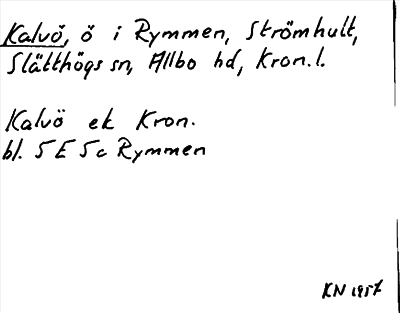 Kalvö, ö i Rymmen, Strömhult,
Slätthögs sn, Allbo hd, Kron. l.
Kalvö ek Kron.
bl. 5 E 5 c Rymmen
KN 1957